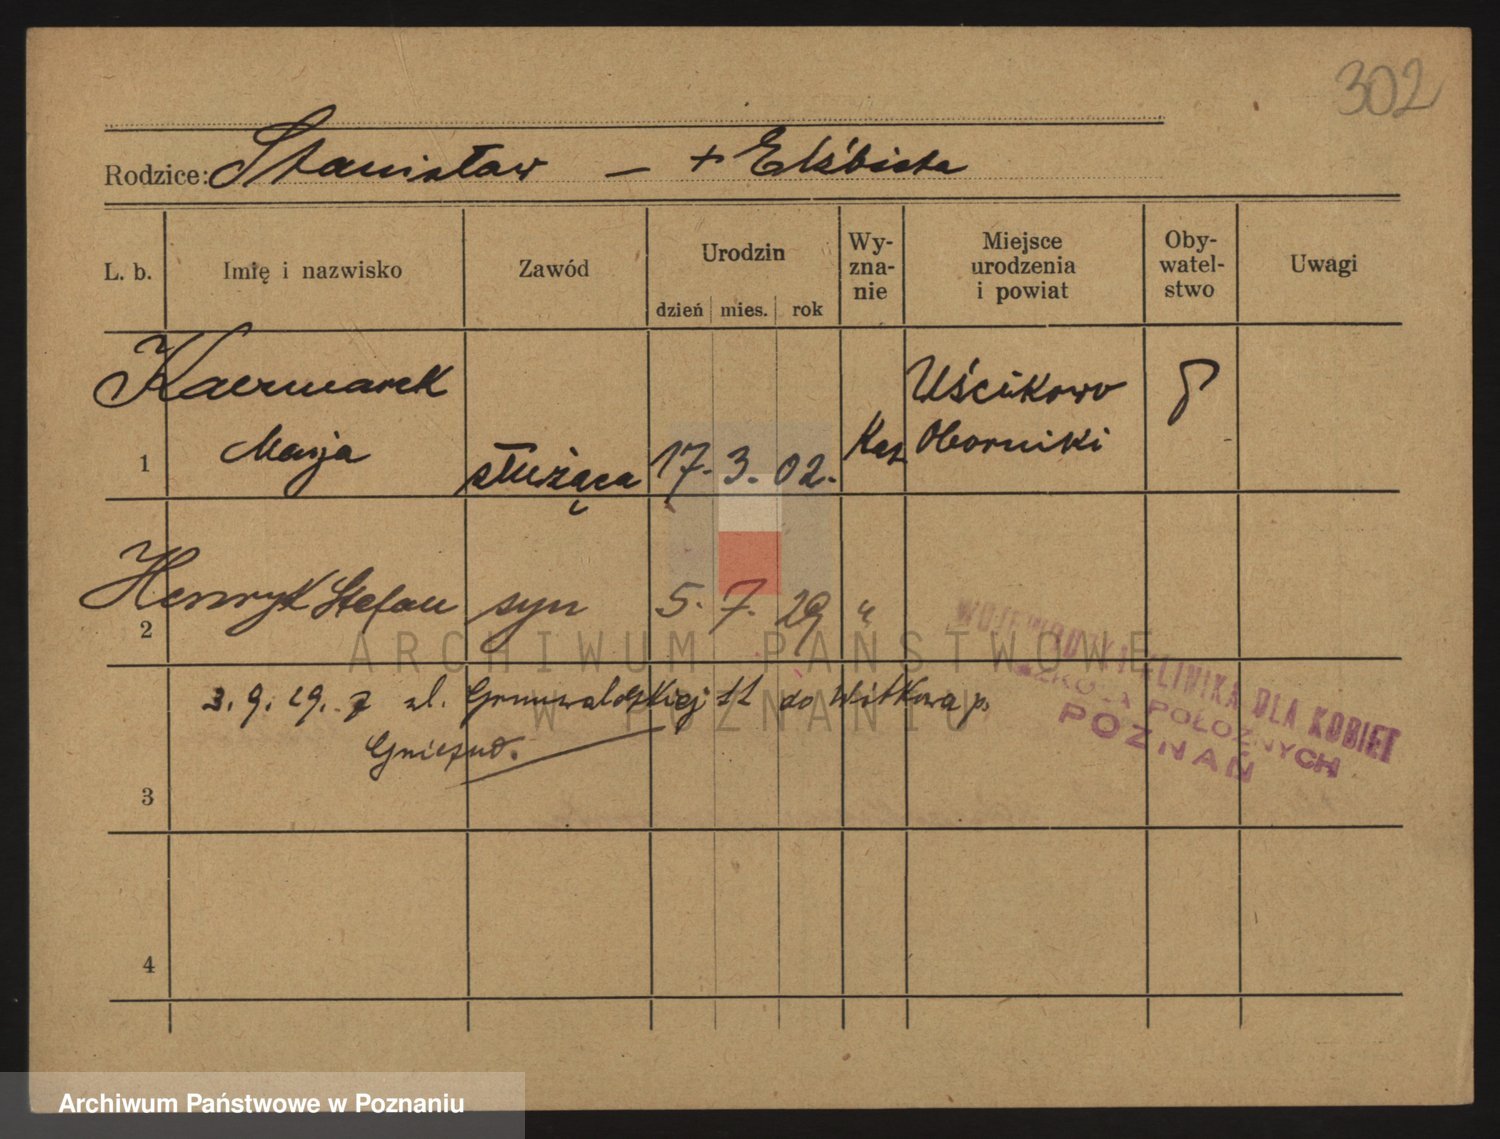 302
Rodzice: Stanisław — + Elżbieta
L. b. Imię i nazwisko Zawód Urodzin dzień mies. rok Wy-zna-nie Miejsce urodzenia i powiat Oby-watel-stwo Uwagi
Kaczmarek Uścikowo P
1 Marja służąca 17. 3. 02. Kat Oborniki
2 Henryk Stefan syn 5. 7. 29 "
3. 9. 29. z ul. Grunwaldzkiej 11 do Witkowa p.
Gniezno.
3
4
WOJEWÓDZKA KLINIKA DLA KOBIET
SZKOŁA POŁOŻNYCH
POZNAŃ
ARCHIWUM PAŃSTWOWE
W POZNANIU
Archiwum Państwowe w Poznaniu